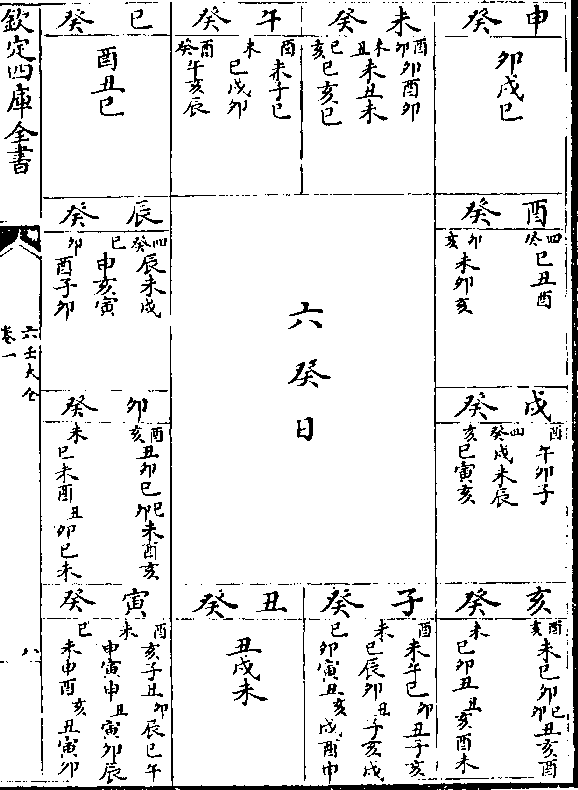 申癸
卯戌巳
未癸
酉卯卯酉卯
未丑未丑未
巳亥巳亥巳
午癸
酉未子巳
未巳戌卯
酉癸午亥辰
巳癸
酉丑巳
酉癸
四癸巳丑酉
卯亥未卯亥
辰癸
四癸辰未戌
巳申亥寅
卯酉子卯
六癸日
戌癸
酉午卯子
四癸戌未辰
亥巳寅亥
卯癸
酉亥丑卯巳巳卯未酉亥
未巳未酉丑卯巳未
亥癸
酉亥未巳卯巳卯丑亥酉
未巳卯丑丑亥酉未
子癸
酉未午巳卯丑子亥
未巳辰卯丑子亥戌
巳卯寅丑亥戌酉申
丑癸
丑戌未
寅癸
酉亥子丑卯辰巳午
未申寅申丑寅卯辰
巳未申酉亥丑寅卯
欽定四庫全書
六壬大全
卷一
八